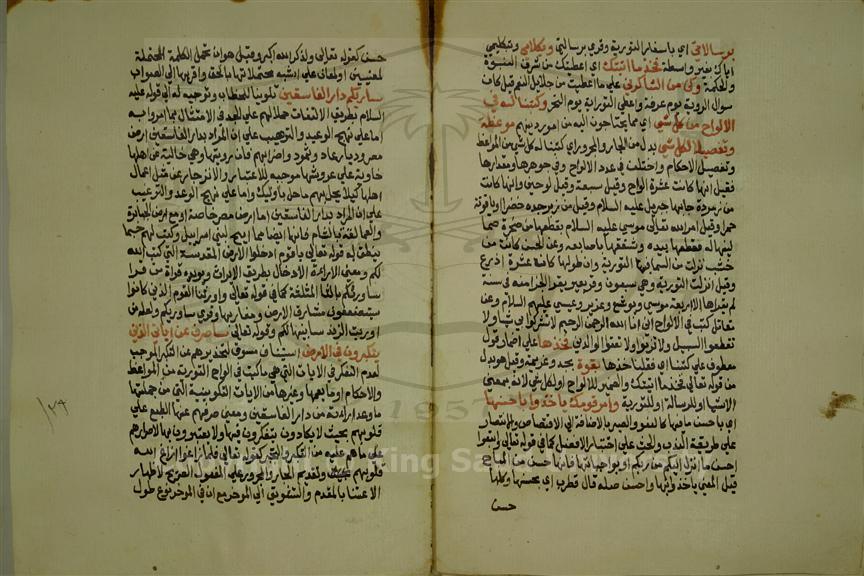 برسالاتي اي باسفار التورية وقري برسالتي وبكلامي وبتكليمي
اياك بغير واسطة فخذ ما اتيتك اي اعطيتك من شرف النبوة
والحكمة وكن من الشاكرين على ما اعطيت من جلائل النعم قيل كان
سوال الروية يوم عرفة واعطي التورية يوم النحر وكتبنا له في
الالواح من كل شي اي مما يحتاجون اليه من امور دينهم موعظة
وتفصيلا لكل شي بدل من الجار والمجرور اي كتبنا له كل شي من المواعظ
وتفصيل الاحكام واختلف في عدد الالواح وفي جوهرها ومقدارها
فقيل انها كانت عشرة الواح وقيل سبعة وقيل لوحين وانها كانت
من زمردة جابها جبريل عليه السلام وقيل من زبرجدة خضرا او ياقوتة
حمرا وقيل امر الله تعالى موسى عليه السلام بقطعها من صخرة صما
لينها له فقطعها بيده وشققها باصابعه وعن الحسن كانت من
خشب نزلت من السما فيها التورية وان طولها كان عشرة اذرع
وقيل انزلت التورية وهي سبعون وقر بعير يقرا الجز منه في سنة
لم يقراها الا اربعة موسى ويوشع وعزير وعيسى عليهم السلام وعن
مقاتل كتب في الالواح اني انا الله الرحمن الرحيم لا تشركوا بي شيا ولا
تقطعوا السبيل ولا تزنوا ولا تعقوا الوالدين فخذها على اضمار قول
معطوف على كتبنا اي فقلنا خذها بقوة بجد وعزيمة وقيل هو بدل
من قوله تعالى فخذ ما اتيتك والضمير للالواح او لكل شي لانه بمعنى
الاشيا او للرسالة او للتورية وامر قومك ياخذوا باحسنها
اي باحسن ما فيها كالعفو والصبر بالاضافة الى الاقتصاص والانتصار
على طريقة الندب والحث على اختيار الافضل كما في قوله تعالى واتبعوا
احسن ما انزل اليكم من ربكم او بواجباتها فانها احسن من المباح
قيل المعنى ياخذوا بها واحسن صله قال قطرب اي بحسنها وكلها
حسن
حسن كقوله تعالى ولذكر الله اكبر وقيل هو ان تحمل الكلمة المحتملة
لمعنيين او لمعان على اشبه محتملاتها بالحق واقربها الى الصواب
ساريكم دار الفاسقين تلوين للخطاب وتوجيه له الى قومه عليه
السلام بطريق الالتفات حملا لهم على الجد في الامتثال بما امروا به
اما على نهج الوعيد والترهيب على ان المراد بدار الفاسقين ارض
مصر وديار عاد وثمود واضرابهم فان رويتها وهي خالية عن اهلها
خاوية على عروشها موجبة للاعتبار والانزجار عن مثل اعمال
اهلها كيلا يحل بهم ما حل باوليك واما على نهج الوعد والترغيب
على ان المراد بدار الفاسقين اما ارض مصر خاصة او مع ارض الجبابرة
والعمالقة بالشام فانها ايضا مما اتيح لبني اسرايل وكتب لهم حسبما
ينطق به قوله تعالى يا قوم ادخلوا الارض المقدسة التي كتب الله
لكم ومعنى الاراءة الادخال بطريق الايراث ويويده قراة من قرا
ساورثكم بالثا المثلثة كما في قوله تعالى واورثنا القوم الذين كانوا
يستضعفون مشارق الارض ومغاربها وقري ساوريكم ولعله من
اوريت الزند ساينها لكم وقوله تعالى ساصرف عن اياتي الذين
يتكبرون في الارض استيناف مسوق لتحذيرهم عن التكبر الموجب
لعدم التفكر في الايات التي هي ما كتب في الواح التورية من المواعظ
والاحكام او ما يعمها وغيرها من الايات التكوينية التي من جملتها
ما وعد اراءته من دار الفاسقين ومعنى صرفهم عنها الطبع على
قلوبهم بحيث لا يكادون يتفكرون فيها ولا يعتبرون بها لاصرارهم
على ما هم عليه من التكبر والتجبر كقوله تعالى فلما زاغوا ازاغ الله
قلوبهم وتقديم الجار والمجرور على المفعول الصريح لاظهار
الاعتنا بالمقدم والتشويق الى الموخر مع ان في الموخر نوع طول
١٣٩
1957
King Saud